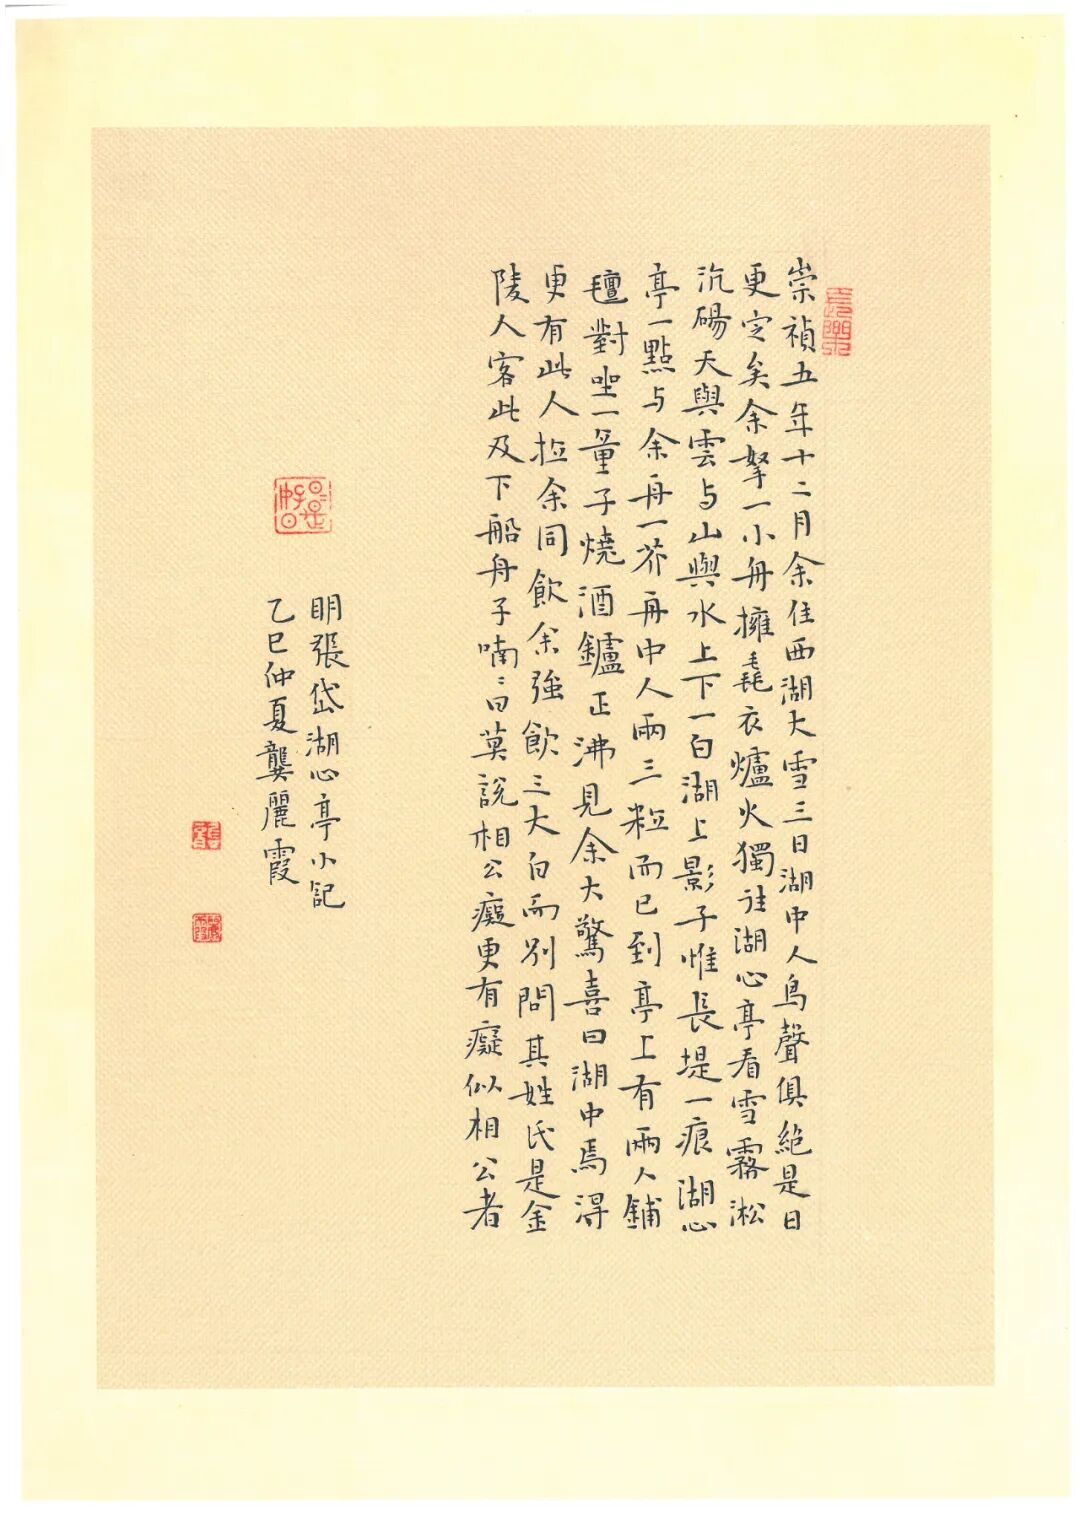 長樂
崇禎五年十二月余住西湖大雪三日湖中人鳥聲俱絕是日
更定矣余拏一小舟擁毳衣爐火獨往湖心亭看雪霧淞
沆碭天與雲与山與水上下一白湖上影子惟長堤一痕湖心
亭一點与余舟一芥舟中人兩三粒而已到亭上有兩人鋪
氊對坐一童子燒酒鑪正沸見余大驚喜曰湖中焉得
更有此人拉余同飲余強飲三大白而別問其姓氏是金
陵人客此及下船舟子喃〻曰莫說相公癡更有癡似相公者
日〻是好日
明張岱湖心亭小記
乙巳仲夏龔麗霞